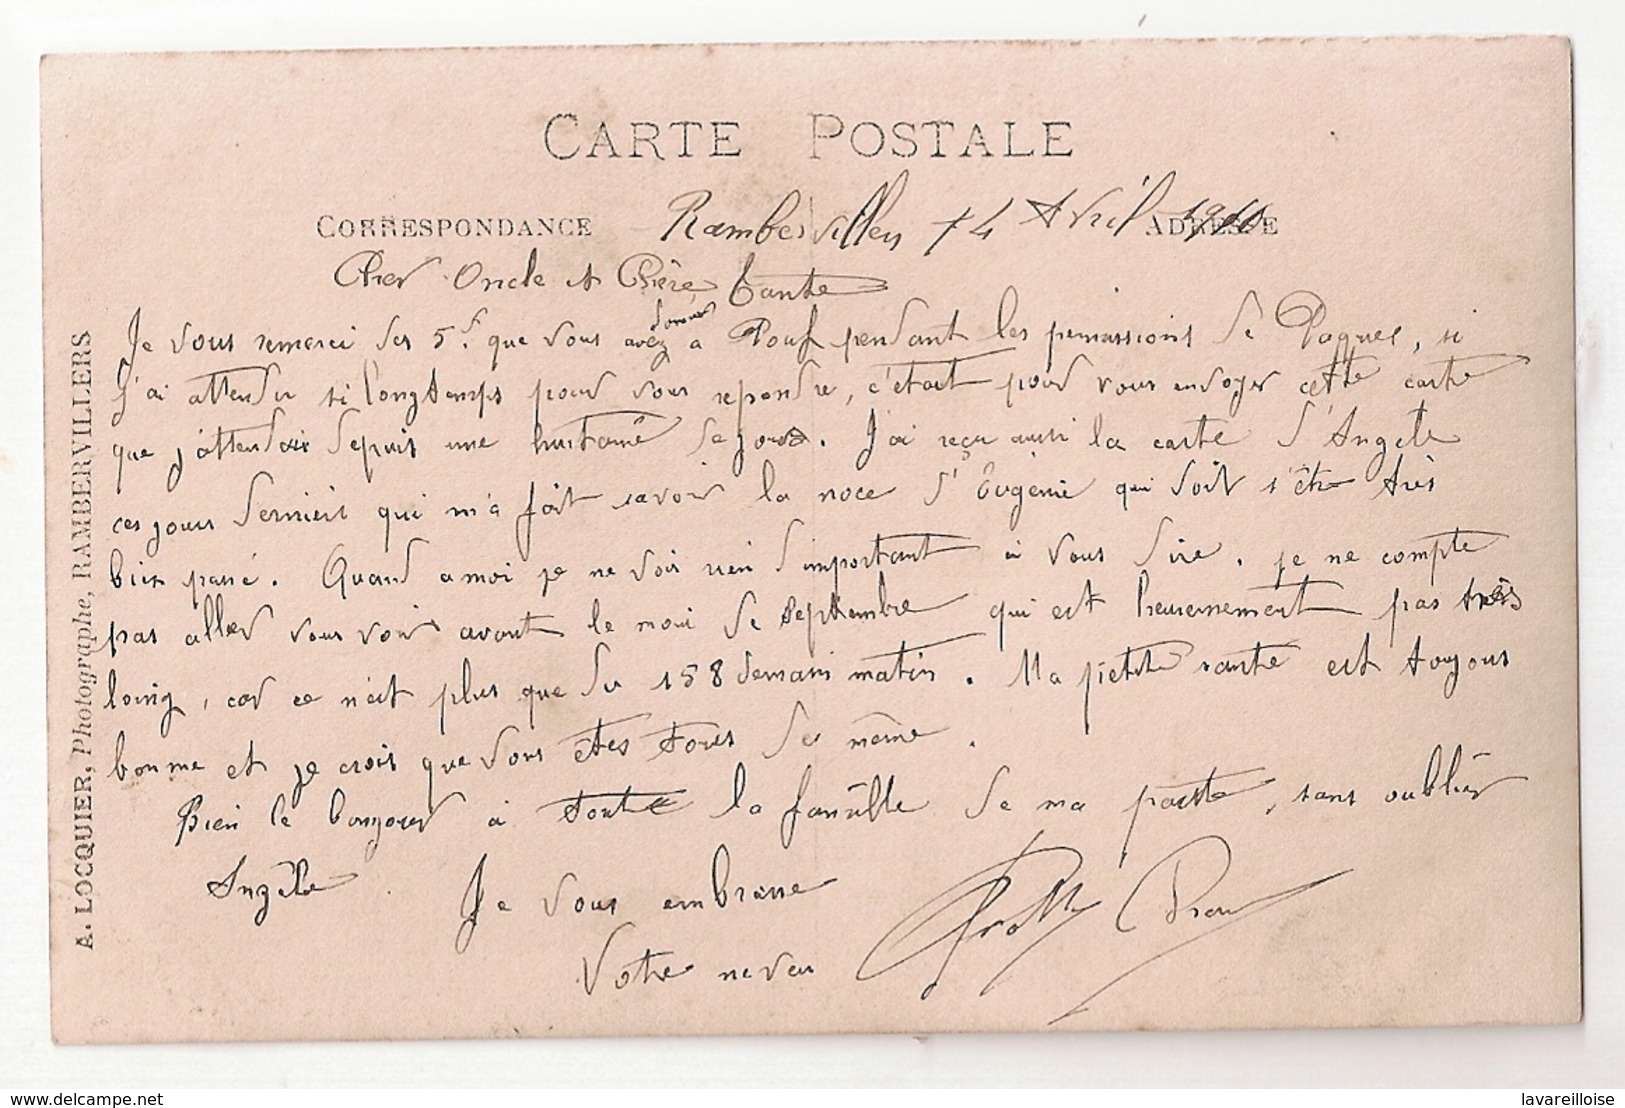 CARTE POSTALE
CORRESPONDANCE
ADRESSE
Rambervillers 14 Avril
Cher Oncle et Chère tante
donner
Je vous remerci des 5f. que vous avez a Pouf pendant les permissions de Paques, si
j'ai attendu si longtemps pour vous repondre, c'était pour vous envoyer cette carte
que j'attendais depuis une huitaine de jours. J'ai reçu aussi la carte d'Angèle
ces jours derniers qui m'a fait savoir la noce d'Eugénie qui doit s'être très
bien passé. Quand a moi je ne vois rien d'important à vous dire. je ne compte
pas aller vous voir avant le moi de Septembre qui est heureusement pas très
loing, car ce n'est plus que du 158 demain matin. Ma petite santé est toujours
bonne et je crois que vous êtes tous de même.
Bien le bonjour à toute la famille de ma part, sans oublier
Angèle. Je vous embrasse
Votre neveu
A. LOCQUIER, Photographe, RAMBERVILLERS
www.delcampe.net
lavareilloise